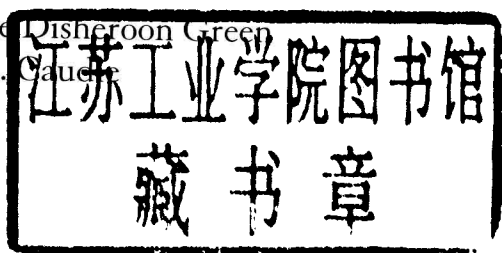 Disheroon Green
Caudle
江苏工业学院图书馆
藏书章